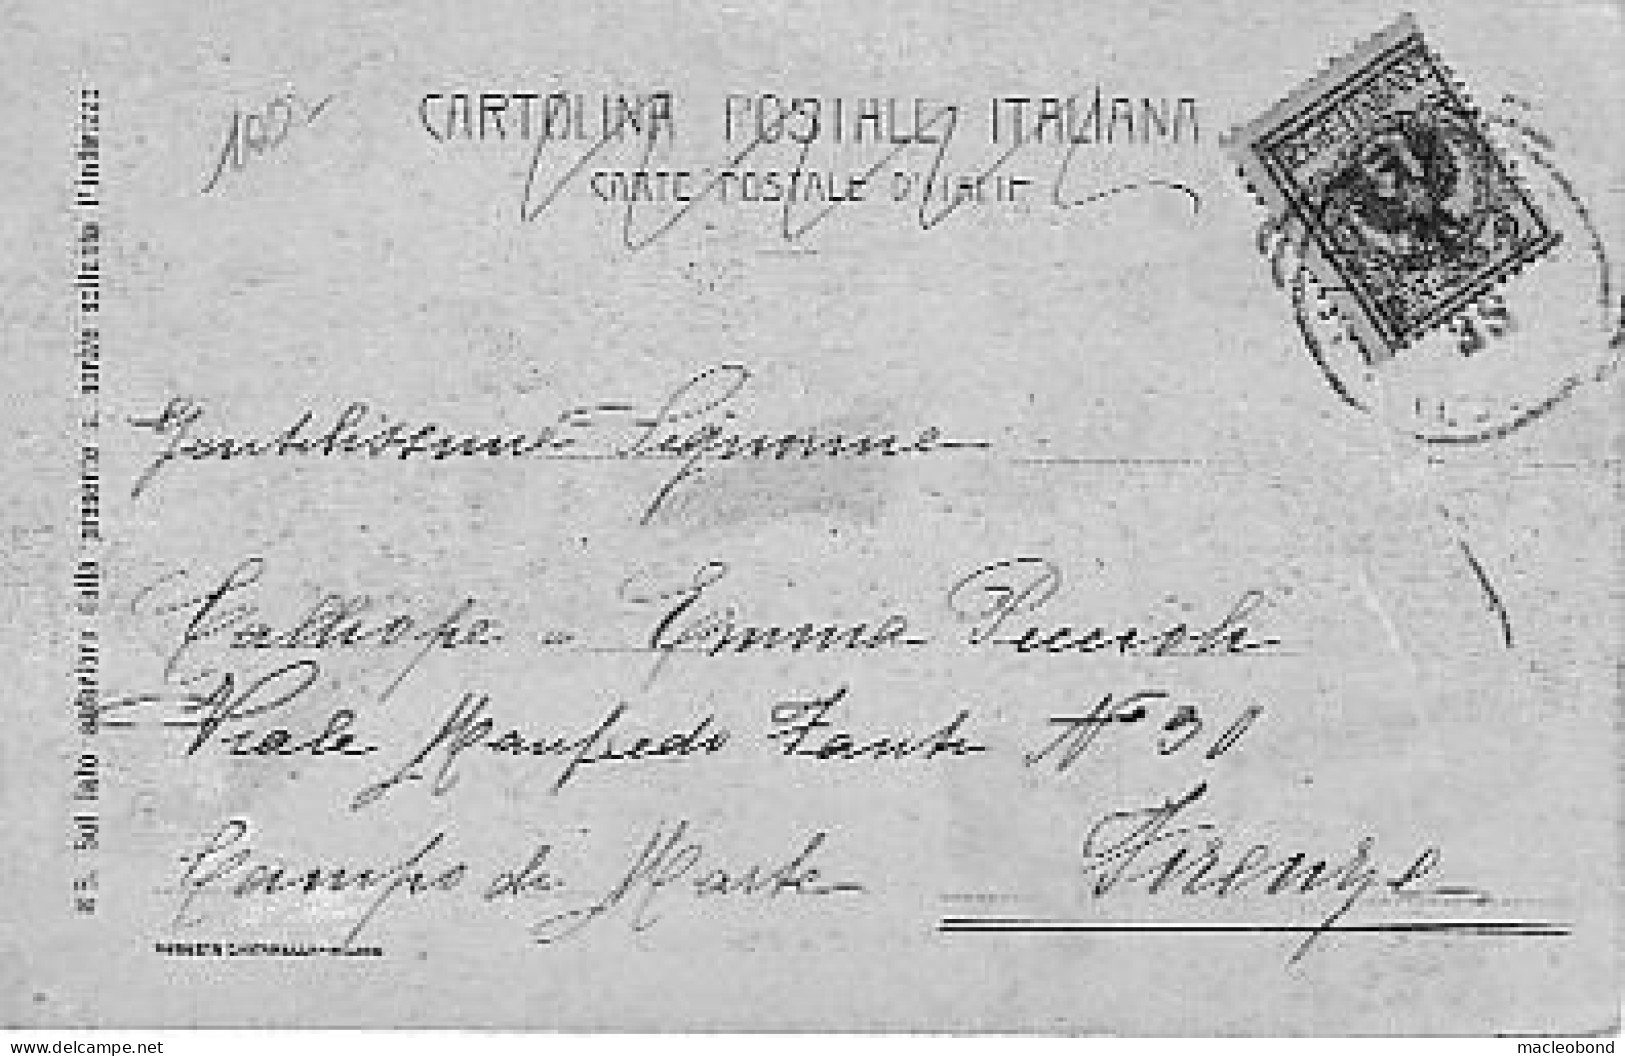 100
CARTOLINA POSTALE ITALIANA
CARTE POSTALE D'ITALIE
Gentilissime Signorine
Calliope e Emma Piccioli
Viale Manfredo Fanti N° 30
Campo di Marte Firenze
N.B. Sul lato anteriore della presente si scrive soltanto l'indirizzo
www.delcampe.net
macleobond